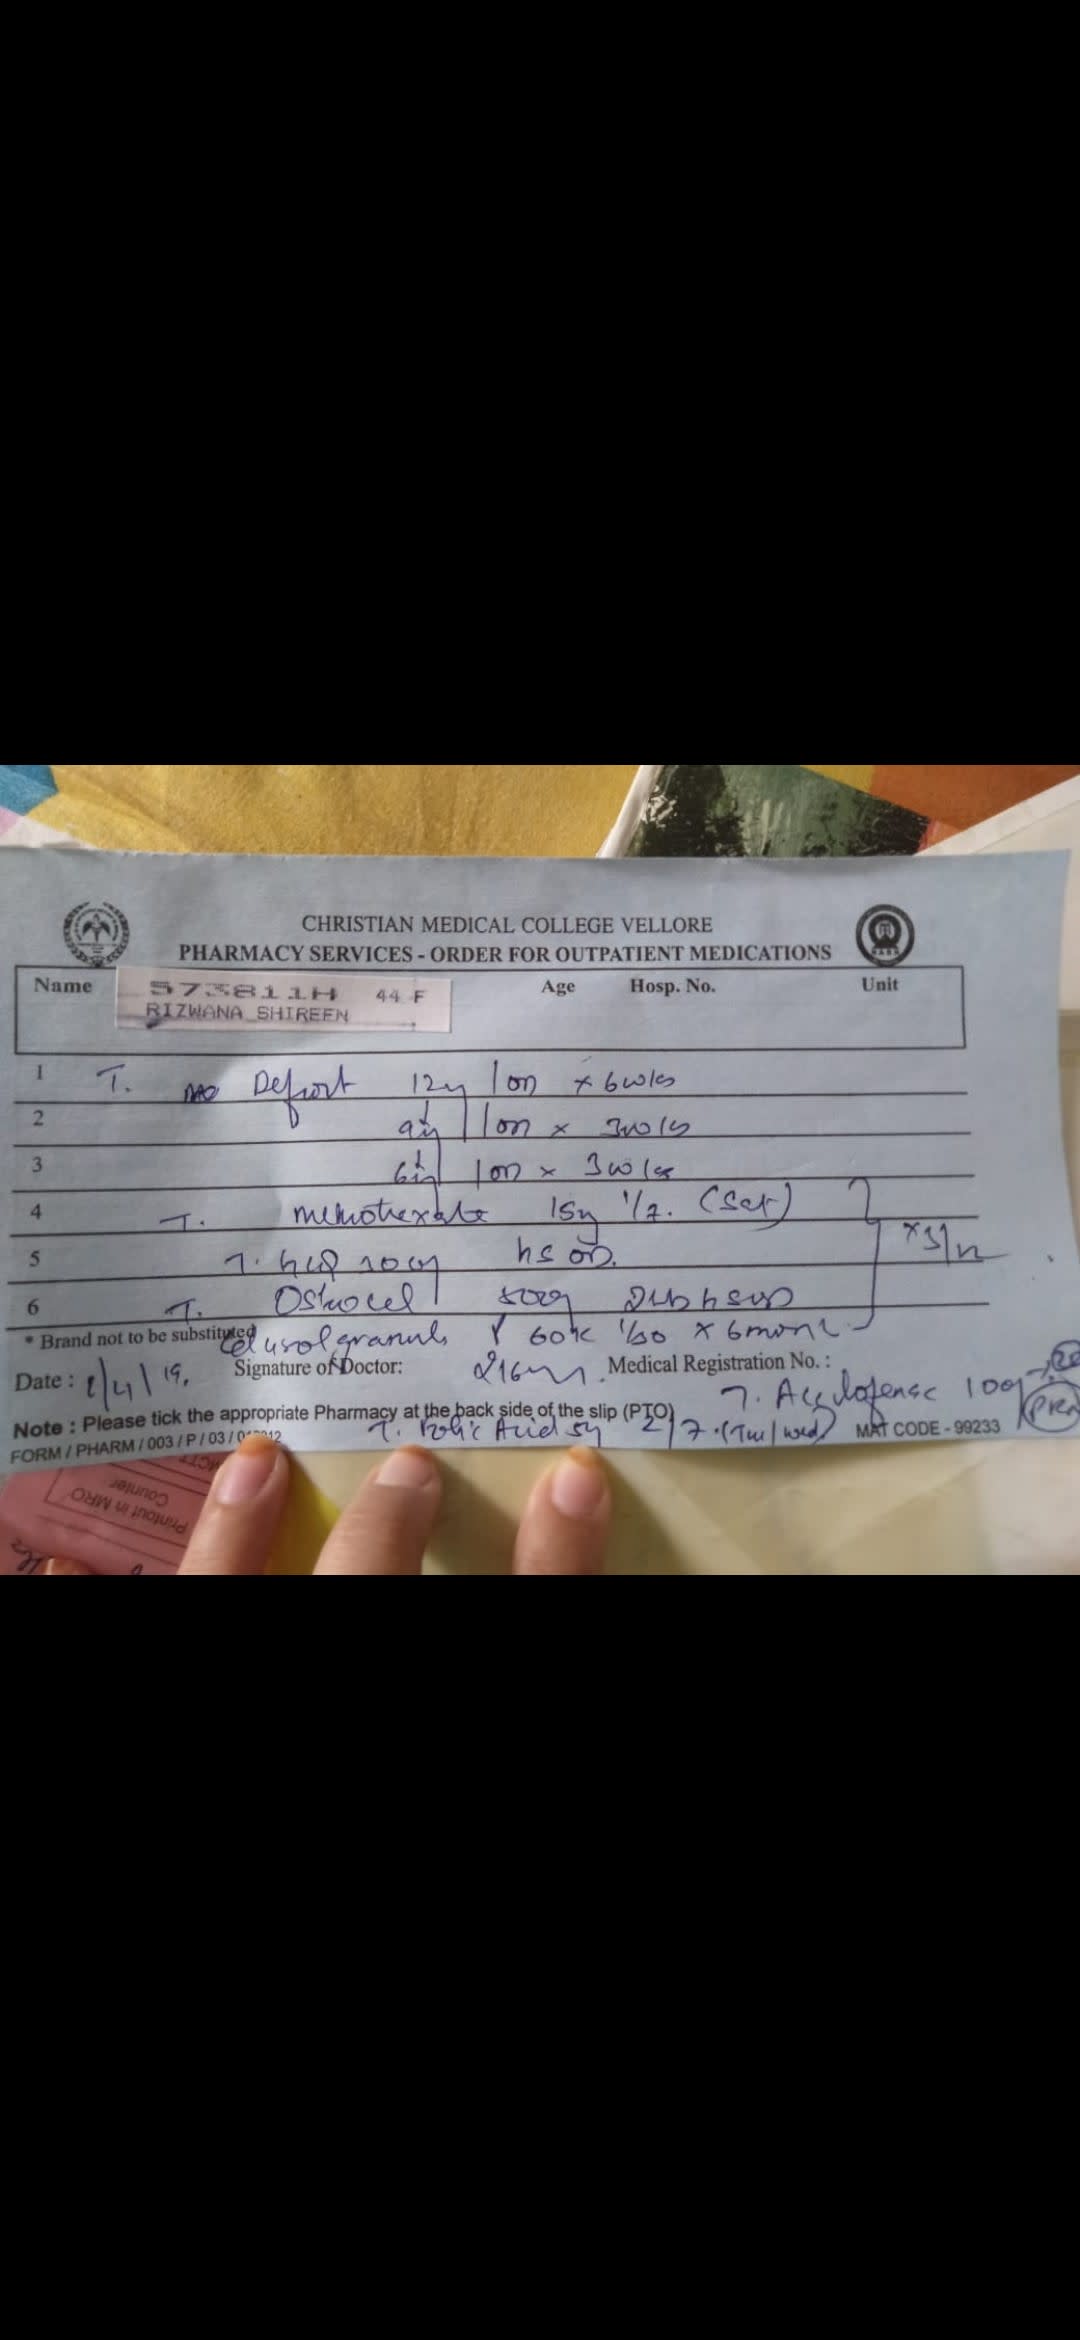 CHRISTIAN MEDICAL COLLEGE VELLORE
PHARMACY SERVICES - ORDER FOR OUTPATIENT MEDICATIONS
Name 573811H 44 F Age Hosp. No. Unit
RIZWANA SHIREEN
1 T. Defcort 12mg 1 OD x 6wks
2 9mg 1 OD x 3wks
3 6mg 1 OD x 3wks
4 T. Methotrexate 15mg 1/7. (Sat)
5 T. HCQ hs OD. x3/12
6 T. Osteocel 500mg
* Brand not to be substituted granules 60K 1/30 x 6mon
Date : /4/19. Signature of Doctor: Medical Registration No. :
T. Aceclofenac 100mg
(PRN)
Note : Please tick the appropriate Pharmacy at the back side of the slip (PTO)
T. Folic Acid 5mg 2/7. (Tue/Wed) MAT CODE - 99233
FORM / PHARM / 003 / P / 03 /
Printout in MRO
Counter